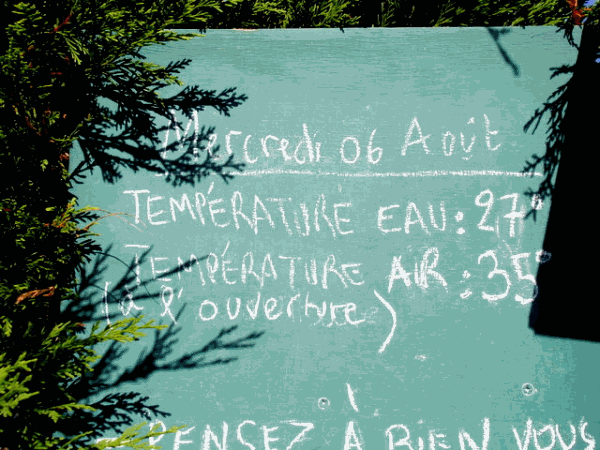 Mercredi 06 Août
TEMPÉRATURE EAU: 27°
TEMPÉRATURE AIR: 35°
(à l'ouverture)
PENSEZ À BIEN VOUS